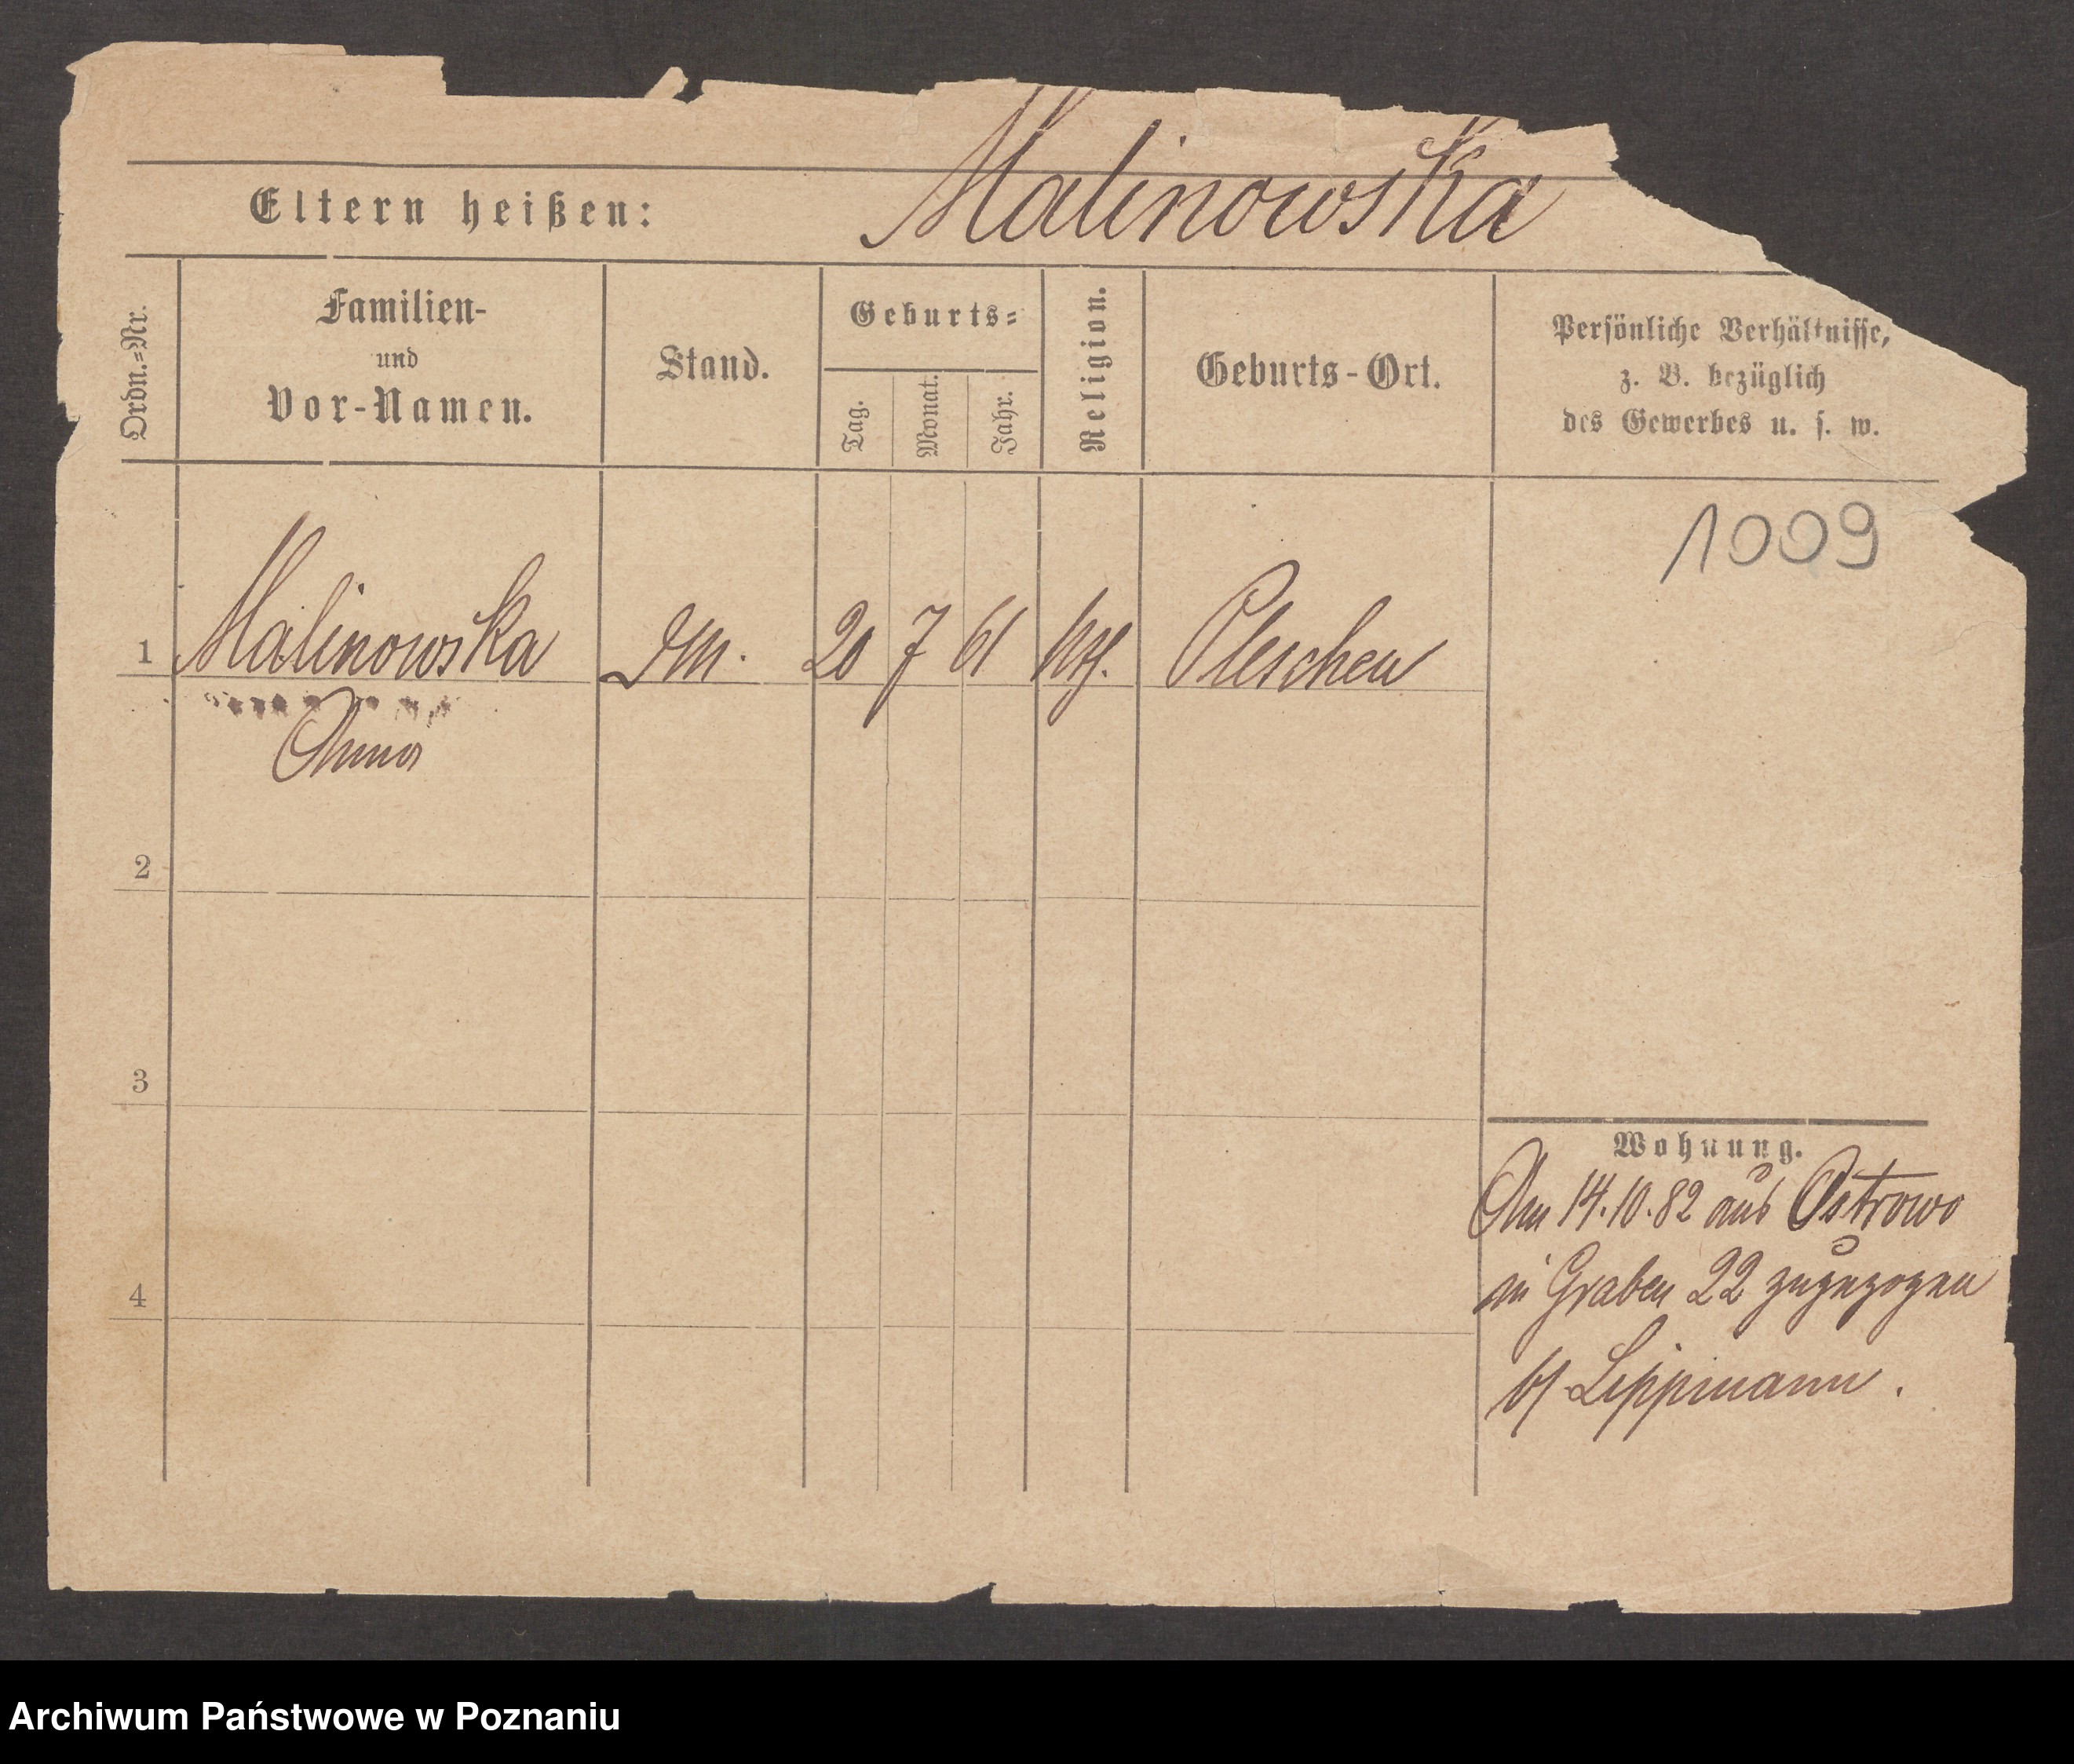 Malinowska
Eltern heißen:
Ordn.=Nr.
Familien-
und
Vor-Namen.
Stand.
Geburts=
Tag.
Monat.
Jahr.
Religion.
Geburts-Ort.
Persönliche Verhältnisse,
z. B. bezüglich
des Gewerbes u. s. w.
1009
1 Malinowska 20 7 61 Pleschen
Anna
2
3
4
Wohnung.
Am 14.10.82 aus Ostrowo
in Graben 22 zugezogen
bei Lippmann.
Archiwum Państwowe w Poznaniu